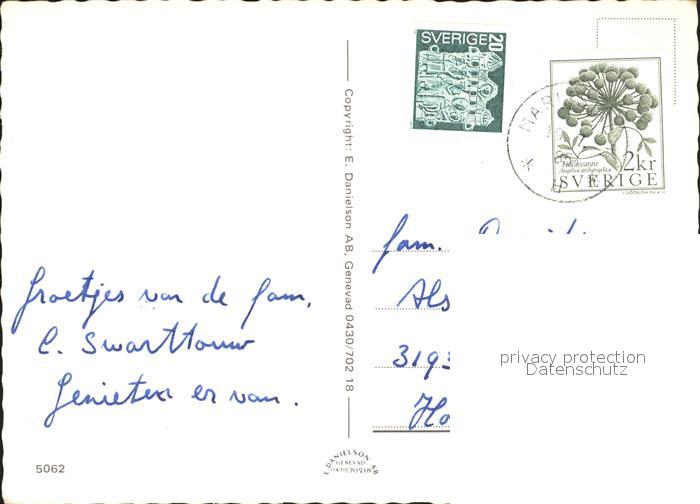 SVERIGE 20
MARI
85
Fjällkvanne
Angelica archangelica
2kr
SVERIGE
Copyright: E. Danielson AB, Genevad 0430/702 18
Groetjes van de fam.
C. Swarttouw
Genieten er van.
fam.
Als
3193
Ho
privacy protection
Datenschutz
E. DANIELSON AB
GENEVAD
0430/70218
5062